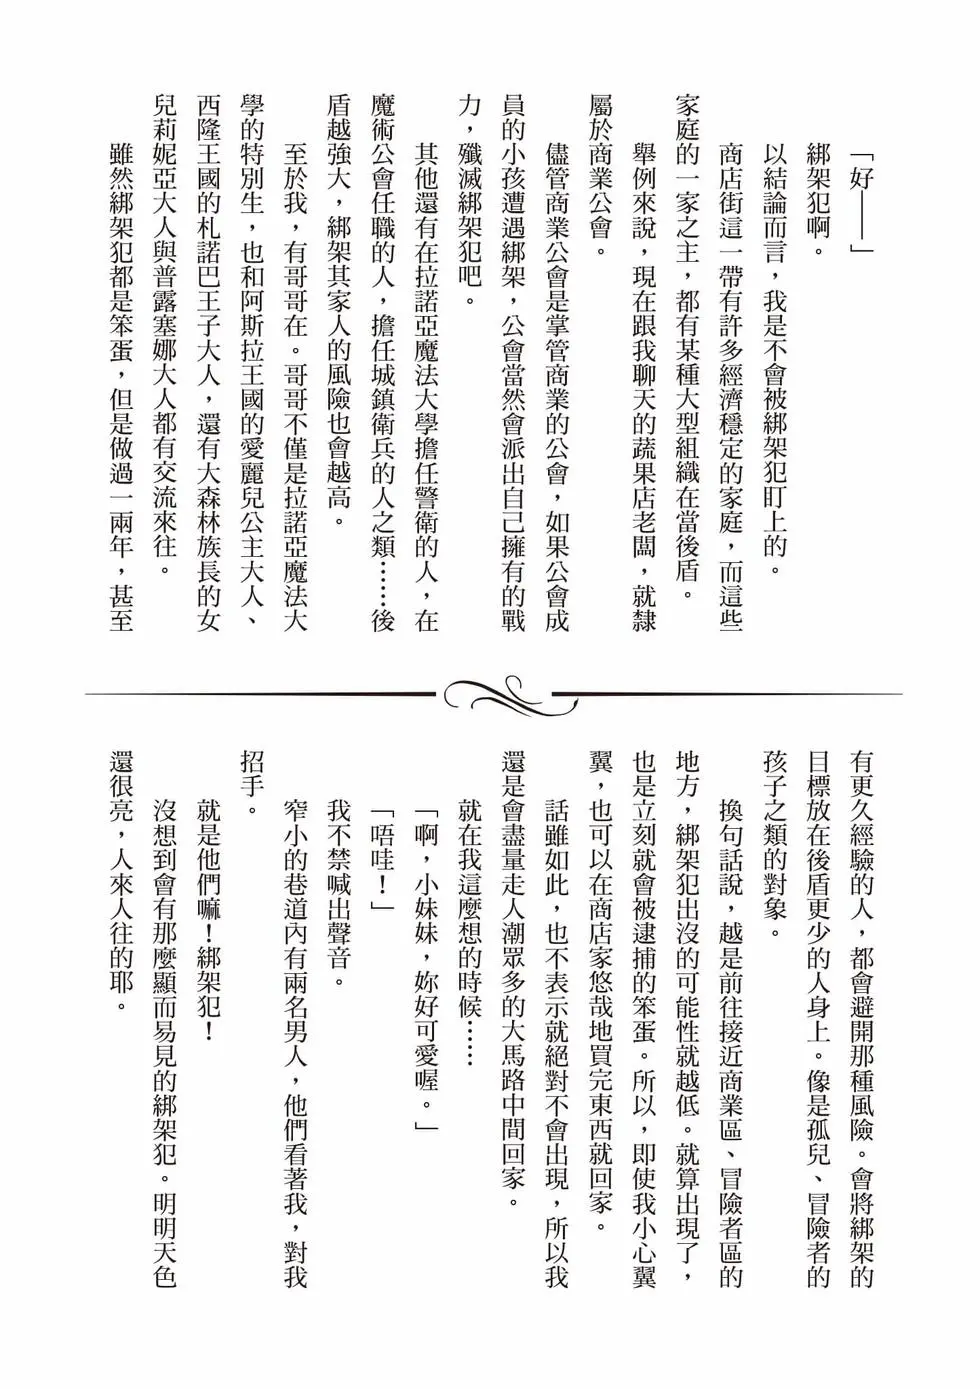 「好——」
綁架犯啊。
以結論而言，我是不會被綁架犯盯上的。
商店街這一帶有許多經濟穩定的家庭，而這些
家庭的一家之主，都有某種大型組織在當後盾。
舉例來說，現在跟我聊天的蔬果店老闆，就隸
屬於商業公會。
儘管商業公會是掌管商業的公會，如果公會成
員的小孩遭遇綁架，公會當然會派出自己擁有的戰
力，殲滅綁架犯吧。
其他還有在拉諾亞魔法大學擔任警衛的人，在
魔術公會任職的人，擔任城鎮衛兵的人之類……後
盾越強大，綁架其家人的風險也會越高。
至於我，有哥哥在。哥哥不僅是拉諾亞魔法大
學的特別生，也和阿斯拉王國的愛麗兒公主大人、
西隆王國的札諾巴王子大人，還有大森林族長的女
兒莉妮亞大人與普露塞娜大人都有交流來往。
雖然綁架犯都是笨蛋，但是做過一兩年，甚至
有更久經驗的人，都會避開那種風險。會將綁架的
目標放在後盾更少的人身上。像是孤兒、冒險者的
孩子之類的對象。
換句話說，越是前往接近商業區、冒險者區的
地方，綁架犯出沒的可能性就越低。就算出現了，
也是立刻就會被逮捕的笨蛋。所以，即使我小心翼
翼，也可以在商店家悠哉地買完東西就回家。
話雖如此，也不表示就絕對不會出現，所以我
還是會盡量走人潮眾多的大馬路中間回家。
就在我這麼想的時候……
「啊，小妹妹，妳好可愛喔。」
「唔哇！」
我不禁喊出聲音。
窄小的巷道內有兩名男人，他們看著我，對我
招手。
就是他們嘛！綁架犯！
沒想到會有那麼顯而易見的綁架犯。明明天色
還很亮，人來人往的耶。